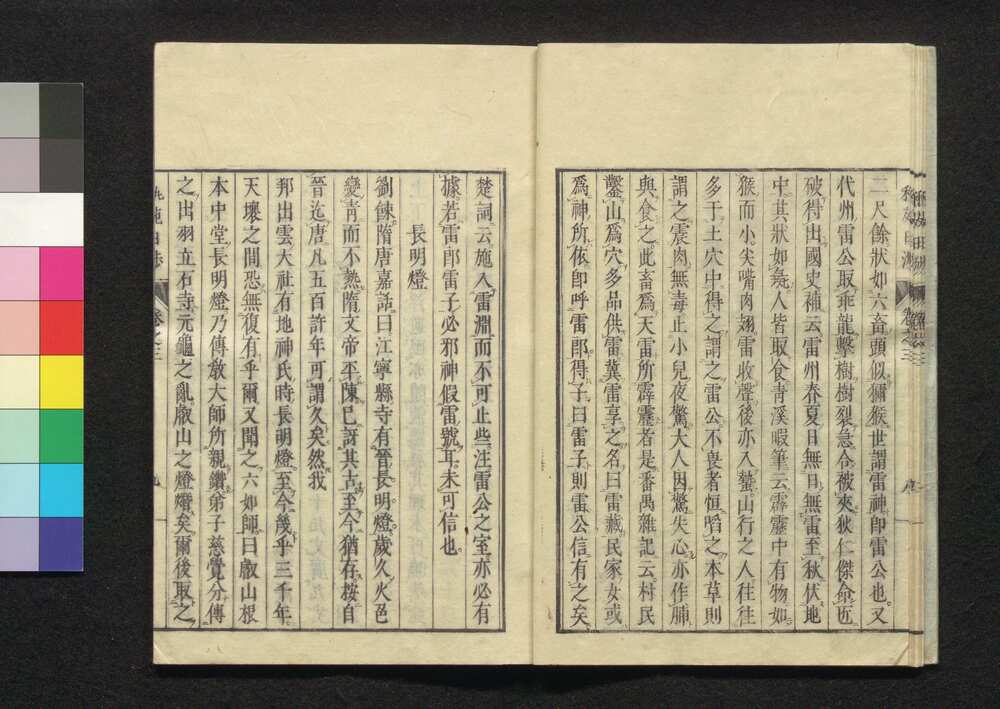 二尺餘狀如六畜頭似獼猴世謂雷神卽雷公也又
代州雷公取乖龍擊樹樹裂急合被夾狄仁傑命匠
破得出國史補云雷州春夏日無日無雷至秋伏地
中其狀如彘人皆取食靑溪暇筆云霹靂中有物如
猴而小尖嘴肉翅雷收聲後亦入蟄山行之人往往
多于土穴中得之謂之雷公不畏者恒啗之本草則
謂之震肉無毒止小兒夜驚大人因驚失心亦作脯
與食之此畜爲天雷所霹靂者是番禺雜記云村民
鑿山爲穴多品供雷冀雷享之名曰雷藏民家女或
爲神所依卽呼雷郎得子曰雷子則雷公信有之矣
楚詞云旋入雷淵而不可止些注雷公之室亦必有
據若雷郎雷子必邪神假雷號耳未可信也
長明燈
劉餗隋唐嘉話曰江寧縣寺有晉長明燈歲久火色
變靑而不熱隋文帝平陳已訝其古至今猶存按自
晉迄唐凡五百許年可謂久矣然我
邦出雲大社有地神氏時長明燈至今幾乎三千年
天壤之間恐無復有乎爾又聞之六如師曰叡山根
本中堂長明燈乃傳敎大師所親鑽弟子慈覺分傳
之出羽立石寺元龜之亂叡山之燈熸矣爾後取之
卷之三